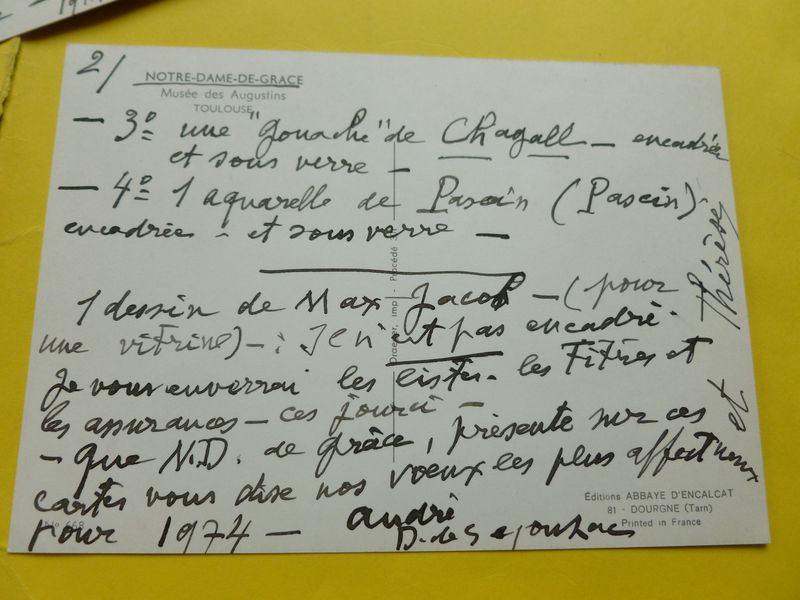 2/
NOTRE-DAME-DE-GRACE
Musée des Augustins
TOULOUSE
— 3º une "gouache" de Chagall — encadrée
et sous verre —
— 4º 1 aquarelle de Pascin (Pascin).
encadrée - et sous verre —
1 dessin de Max Jacob — (pour
une vitrine) - : Il n'est pas encadré.
Je vous enverrai les listes - les Titres et
les assurances — ces jours ci —
- que N.D. de grâce, présente sur ces
cartes vous dise nos vœux les plus affectueux
pour 1974 — andré
et Thérèse
Draeger, imp - Procédé
Éditions ABBAYE D'ENCALCAT
81 - DOURGNE (Tarn)
Printed in France